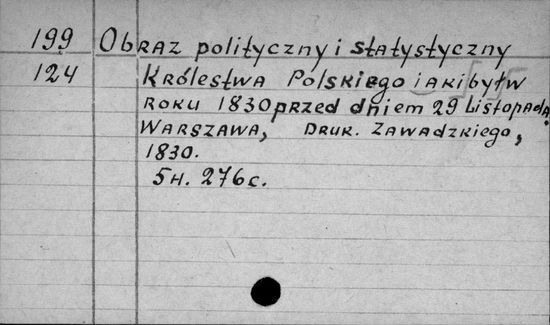 199 Obraz polityczny i statystyczny
124 Królestwa Polskiego i aki był w
roku 1830 przed dniem 29 Listopada.
Warszawa, Druk. Zawadzkiego,
1830.
5н. 276с.